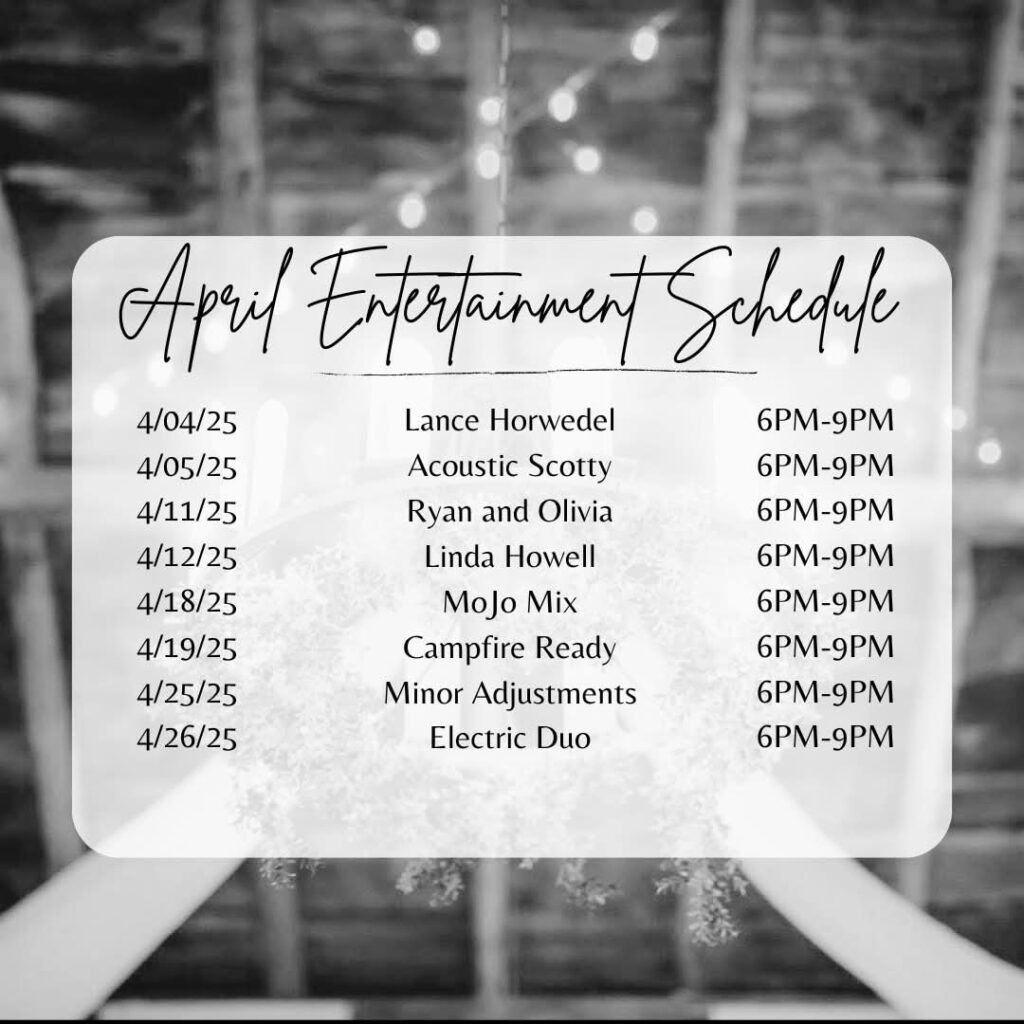 April Entertainment Schedule
4/04/25 Lance Horwedel 6PM-9PM
4/05/25 Acoustic Scotty 6PM-9PM
4/11/25 Ryan and Olivia 6PM-9PM
4/12/25 Linda Howell 6PM-9PM
4/18/25 MoJo Mix 6PM-9PM
4/19/25 Campfire Ready 6PM-9PM
4/25/25 Minor Adjustments 6PM-9PM
4/26/25 Electric Duo 6PM-9PM